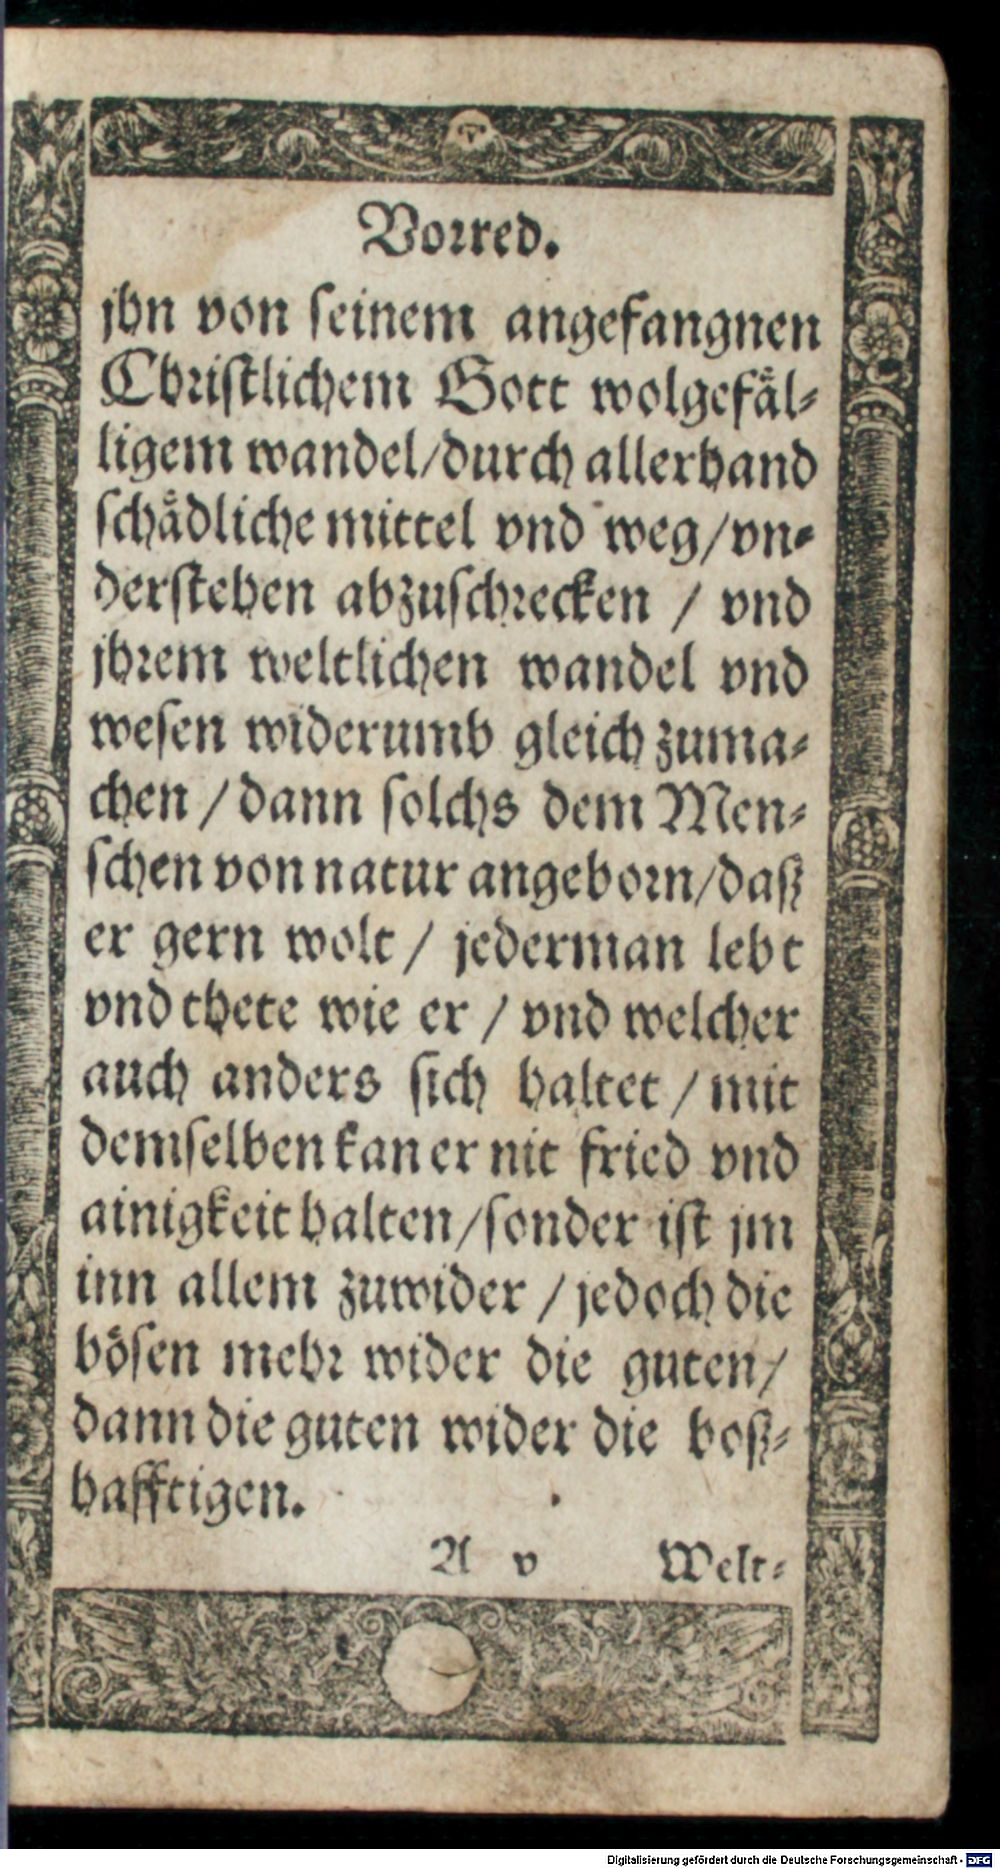 Vorred.
jhn von seinem angefangnen
Christlichem Gott wolgefäl-
ligem wandel/durch allerhand
schädliche mittel vnd weg/vn-
derstehen abzuschrecken / vnd
jhrem weltlichen wandel vnd
wesen widerumb gleich zuma-
chen / dann solchs dem Men-
schen von natur angeborn/daß
er gern wolt / jederman lebt
vnd thete wie er / vnd welcher
auch anders sich haltet / mit
demselben kan er nit fried vnd
ainigkeit halten/sonder ist jm
inn allem zuwider / jedoch die
bösen mehr wider die guten/
dann die guten wider die boß-
hafftigen.
A v Welt-
Digitalisierung gefördert durch die Deutsche Forschungsgemeinschaft - DFG